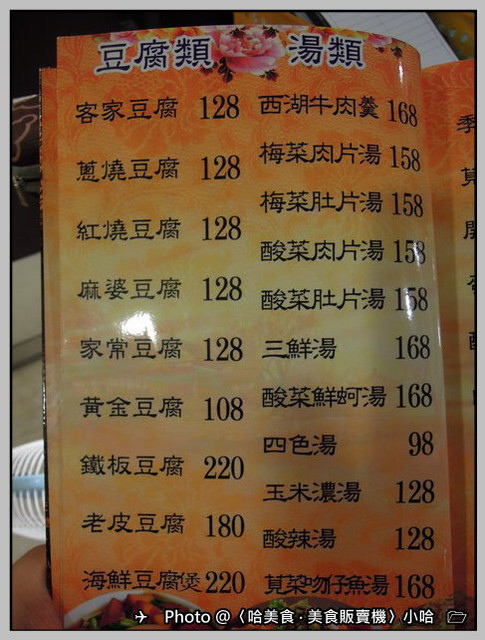 豆腐類
客家豆腐 128
蔥燒豆腐 128
紅燒豆腐 128
麻婆豆腐 128
家常豆腐 128
黃金豆腐 108
鐵板豆腐 220
老皮豆腐 180
海鮮豆腐煲 220
湯類
西湖牛肉羹 168
梅菜肉片湯 158
梅菜肚片湯 158
酸菜肉片湯 158
酸菜肚片湯 158
三鮮湯 168
酸菜鮮蚵湯 168
四色湯 98
玉米濃湯 128
酸辣湯 128
莧菜吻仔魚湯 168
Photo @〈哈美食‧美食販賣機〉小哈